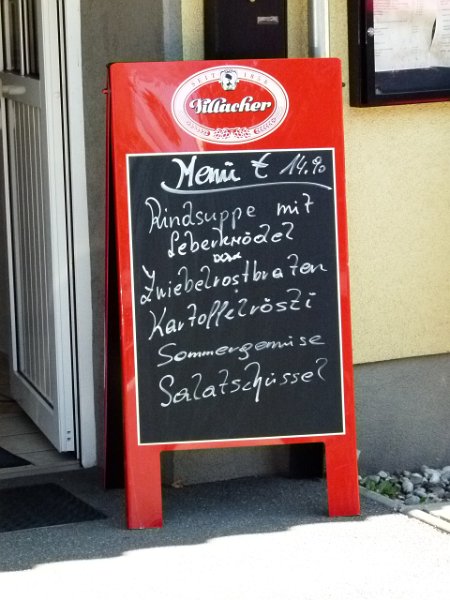 SEIT 1858
Villacher
Menü € 14.90
Rindsuppe mit
Leberknödel
Zwiebelrostbraten
Kartoffelröszi
Sommergemüse
Salatschüssel